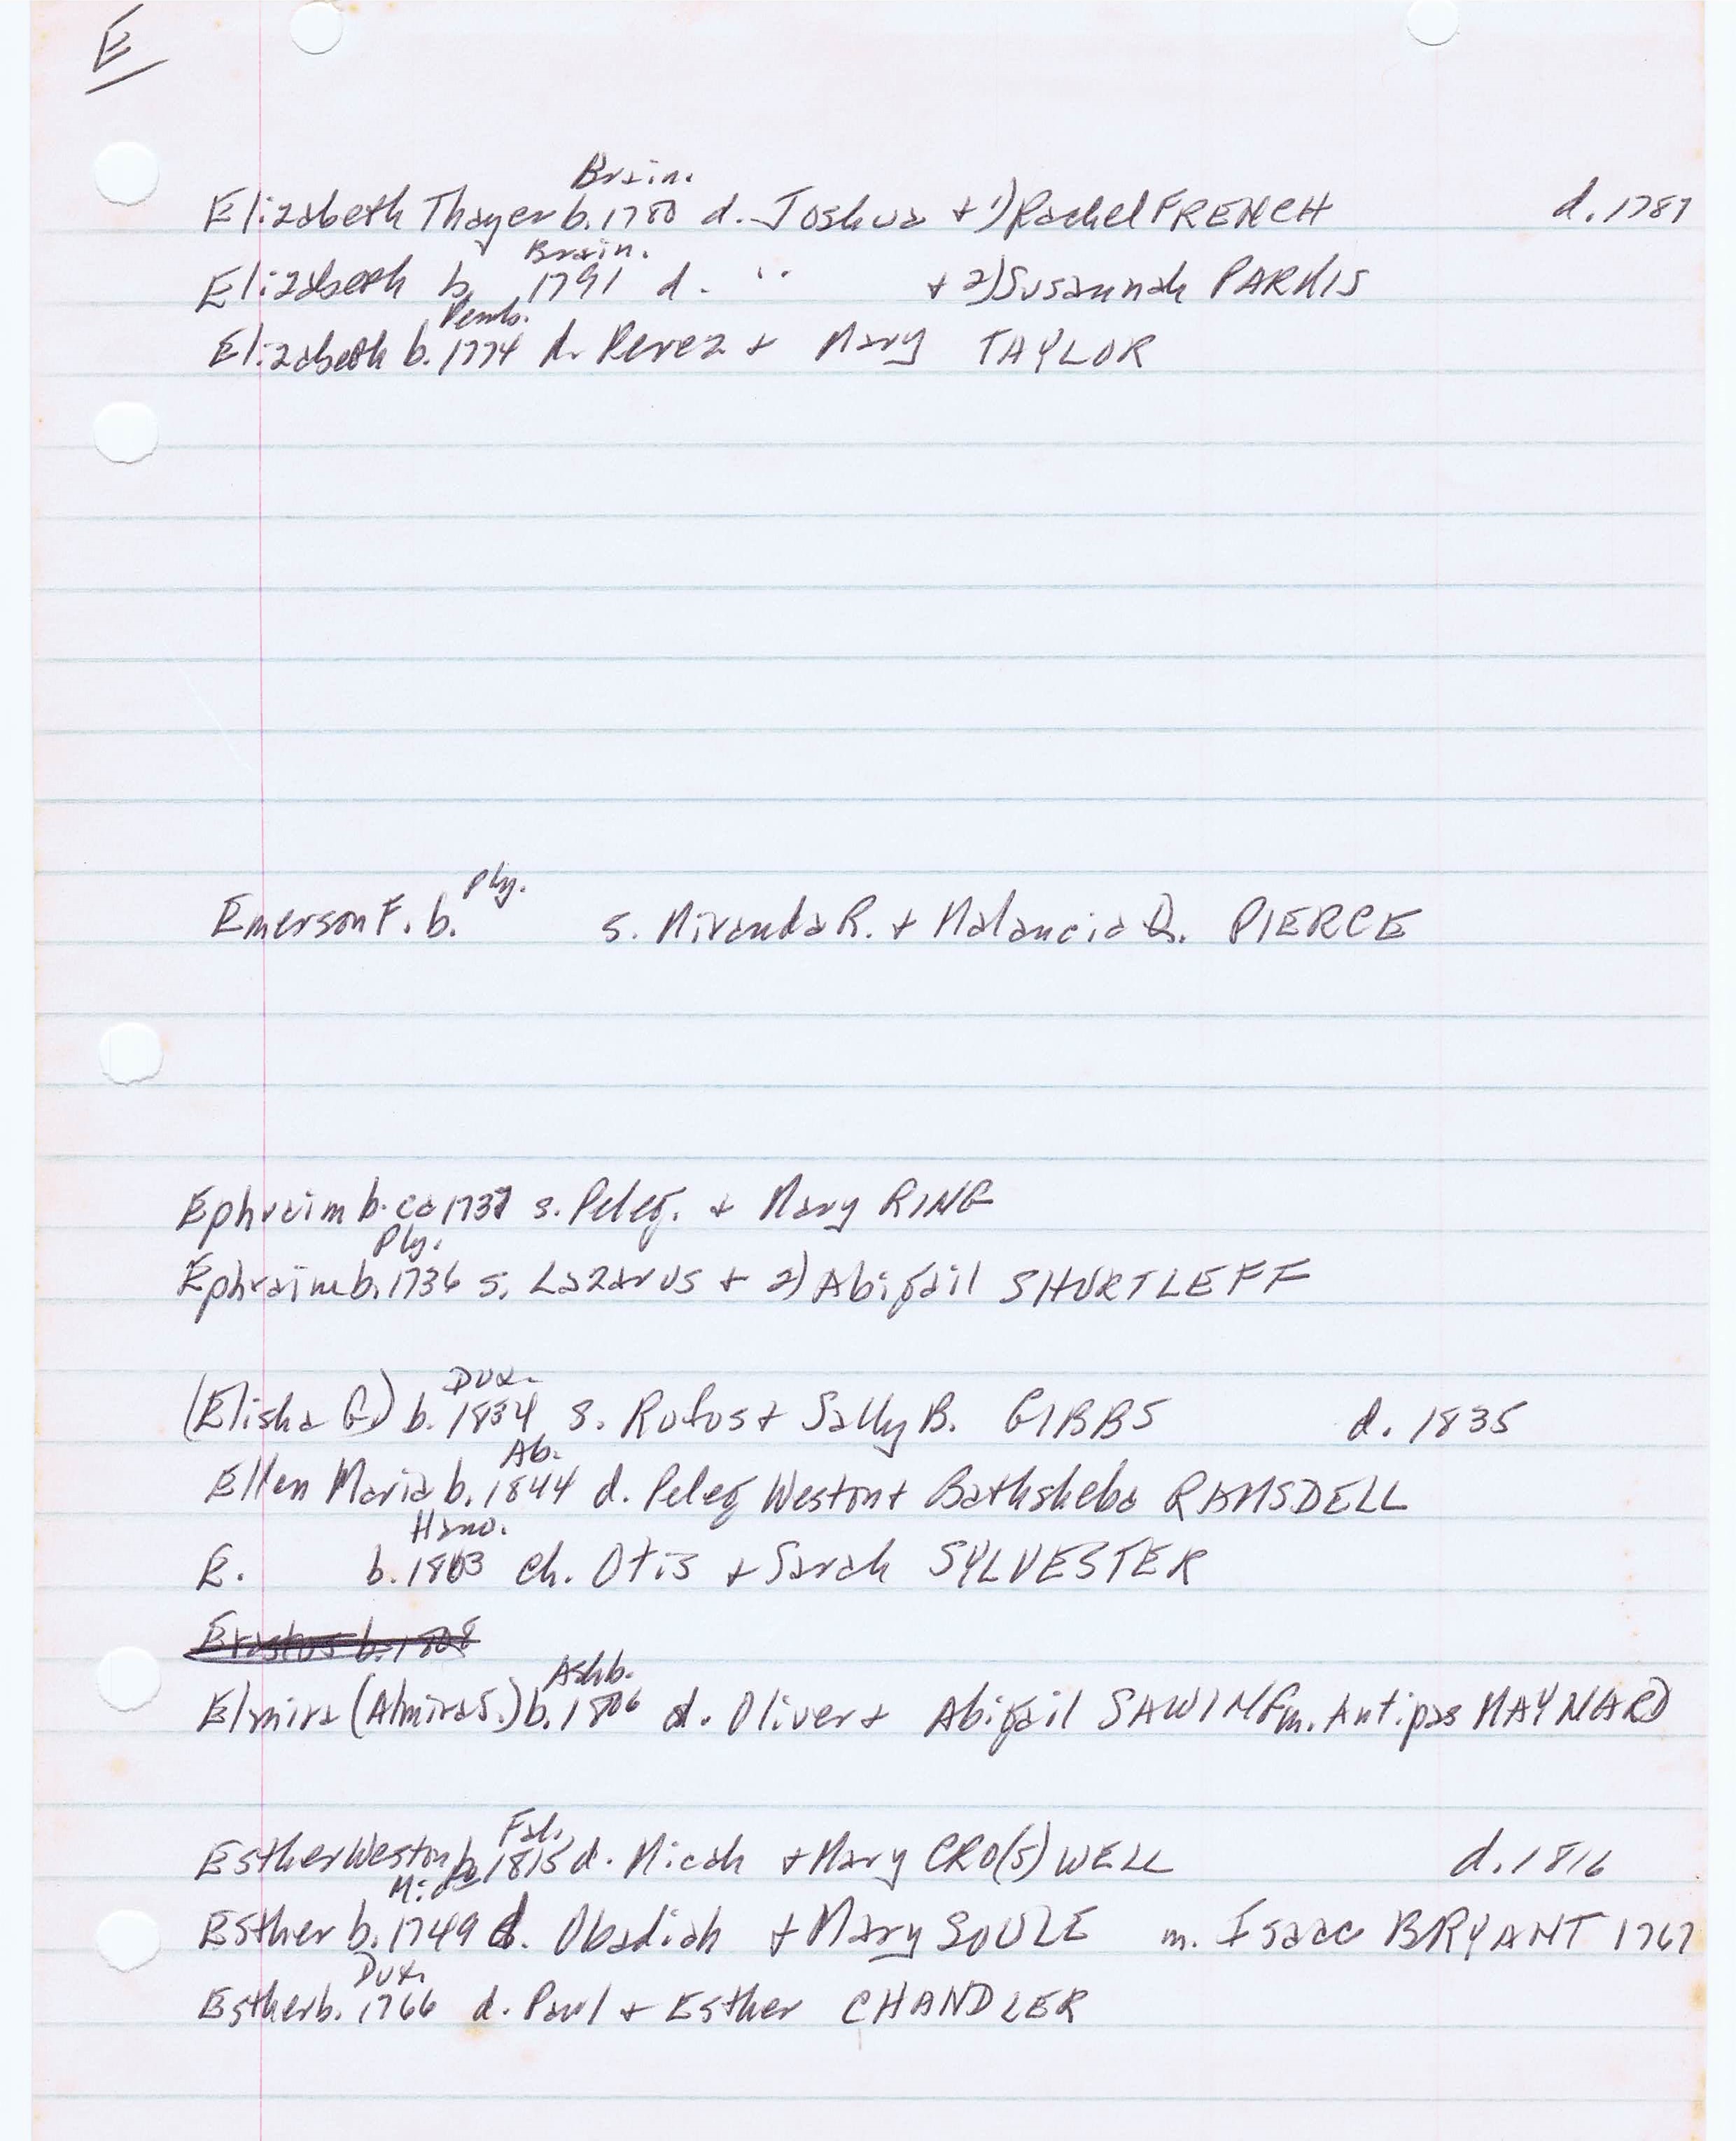 E
Brain.
Elizabeth Thayer b. 1780 d. Joshua + 1) Rachel FRENCH d. 1787
Brain.
Elizabeth b. 1791 d. " + 2) Susannah
Pemb.
Elizabeth b. 1774 d. Perez + Mary TAYLOR
Ply.
Emerson F. b. s. Miranda R. + Malancia D. PIERCE
Ephraim b. ca 1737 s. Peleg. + Mary RING
Ply.
Ephraim b. 1736 s. Lazarus + 2) Abigail SHURTLEFF
Dux.
(Elisha G.) b. 1834 s. Rufus + Sally B. GIBBS d. 1835
Ab.
Ellen Maria b. 1844 d. Peleg Weston + Bathsheba RAMSDELL
Hano.
E. b. 1803 ch. Otis + Sarah SYLVESTER
Erastus b. 1808
Ashb.
Elmira (Almira S.) b. 1806 d. Oliver + Abigail SAWING m. Antipas MAYNARD
Fal.
Esther Weston b. 1815 d. Micah + Mary CRO(S)WELL d. 1816
Midd
Esther b. 1749 d. Obadiah + Mary SOULE m. Isaac BRYANT 1767
Dux.
Esther b. 1766 d. Paul + Esther CHANDLER